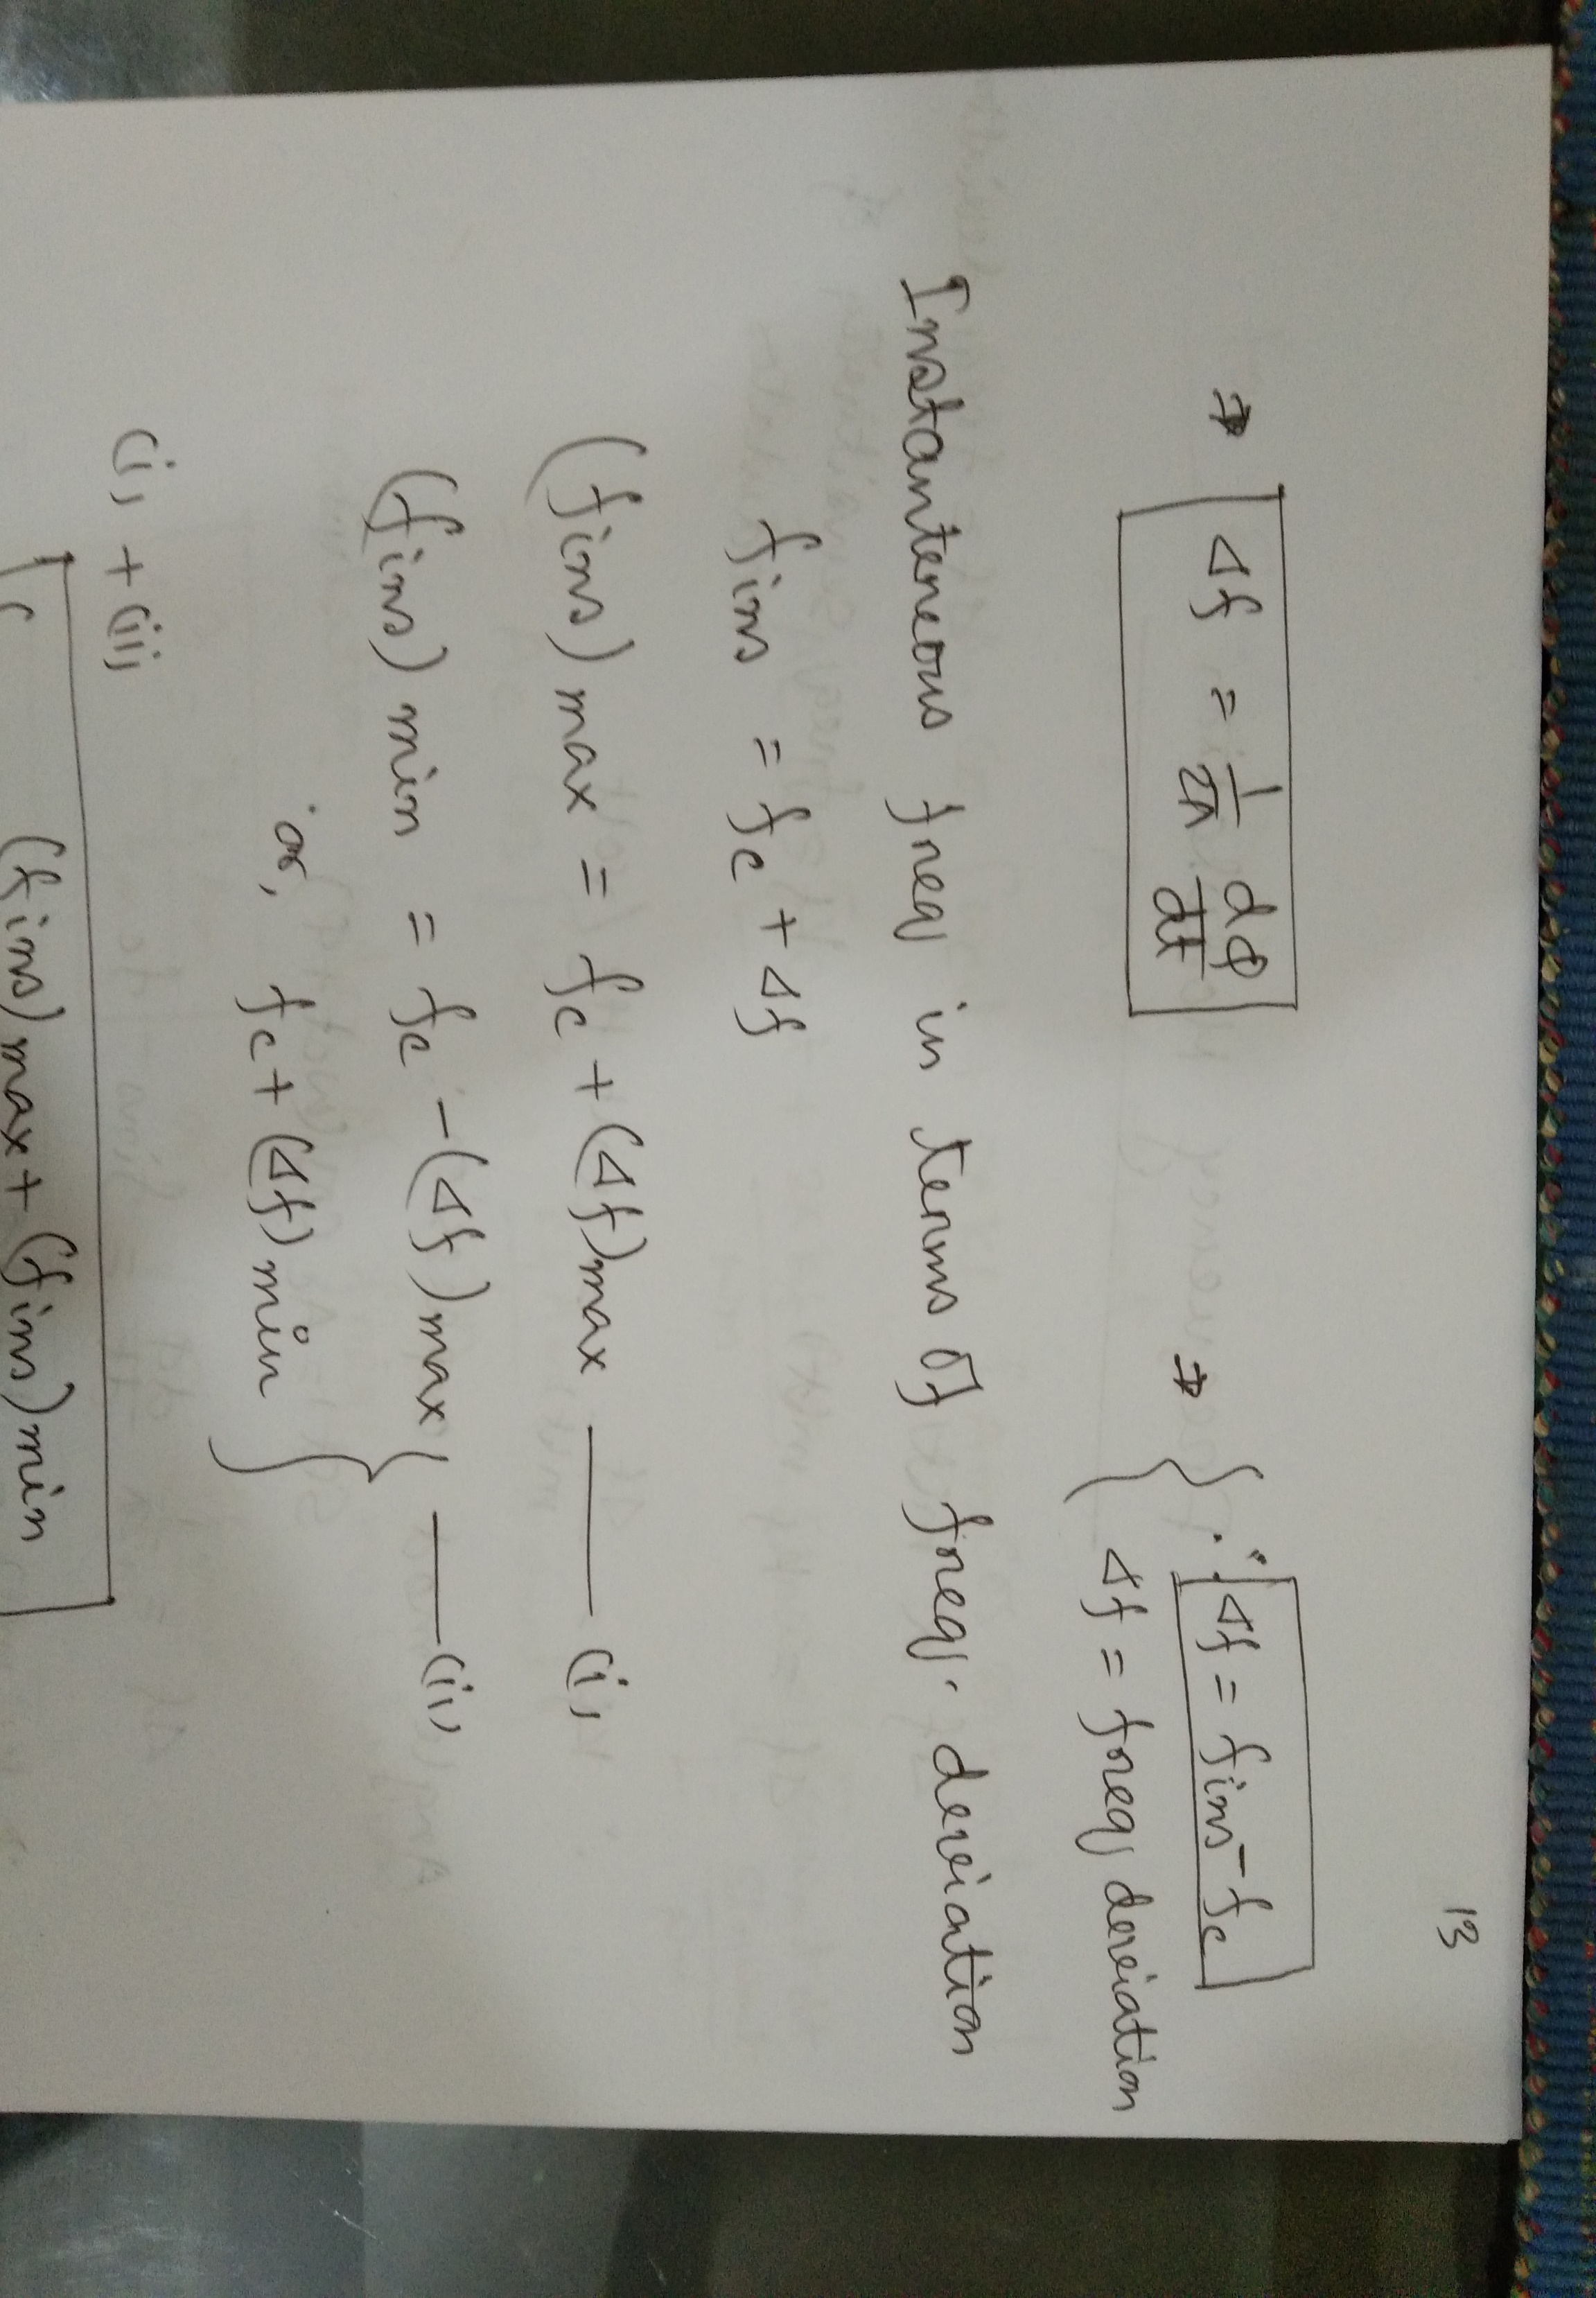 13
⇒ Δf = 1/2π dφ/dt ⇒ { ∵ Δf = fins - fc
Δf = freq deviation
Instanteneous freq in terms of freq. deviation
fins = fc + Δf
(fins) max = fc + (Δf) max —— (i)
(fins) min = fc - (Δf) max } —— (ii)
or, fc + (Δf) min
(i) + (ii)
(fins) max + (fins) min